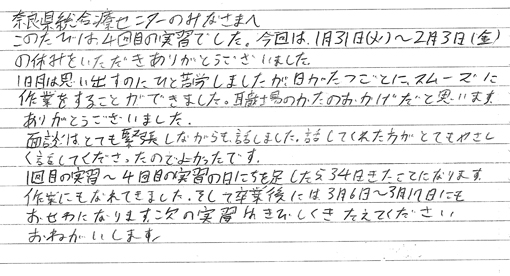 奈良県総合療センターのみなさまへ
このたびは、4回目の実習でした。今回は、1月31日(火)〜2月3日(金)
の休みをいただきありがとうございました。
1日目は思い出すのにひと苦労しましたが、日がたつごとに、スムーズに
作業をすることができました。職場のかたのおかげだと思います。
ありがとうございました。
面談はとても緊張しながらも話しました。話してくれた方がとてもやさし
く話してくださったのでよかったです。
1回目の実習〜4回目の実習の日にちを足したら34日きたことになります。
作業にもなれてきました。そして卒業後には3月6日〜3月17日にも
おせわになります。次の実習 きびしくきたえてください
おねがいします。